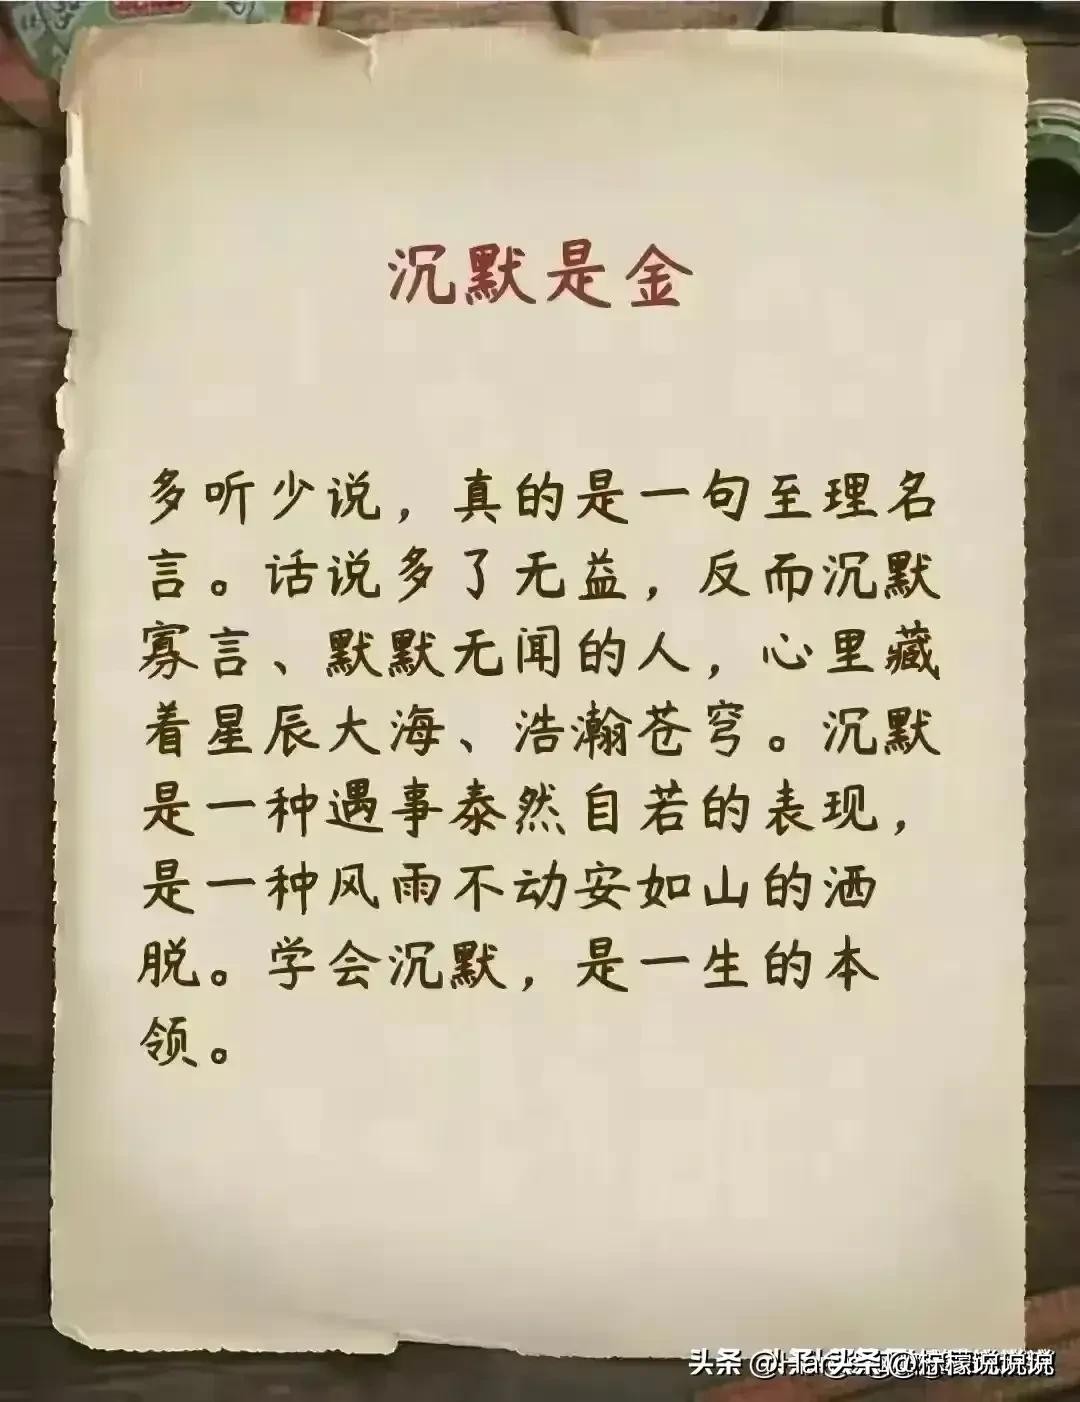 沉默是金
多听少说，真的是一句至理名
言。话说多了无益，反而沉默
寡言、默默无闻的人，心里藏
着星辰大海、浩瀚苍穹。沉默
是一种遇事泰然自若的表现，
是一种风雨不动安如山的洒
脱。学会沉默，是一生的本
领。
头条 @柠檬说说说